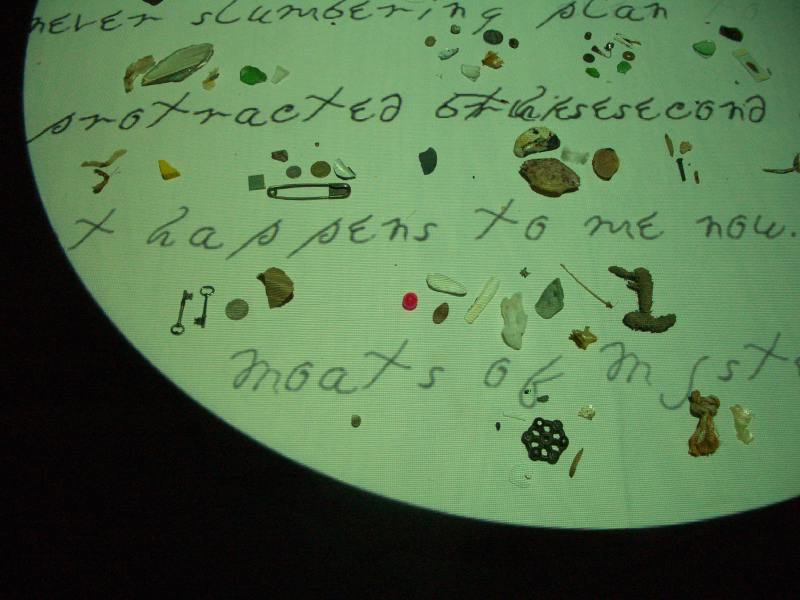 never slumbering plan to
protracted
t happens to me now.
moats of myst